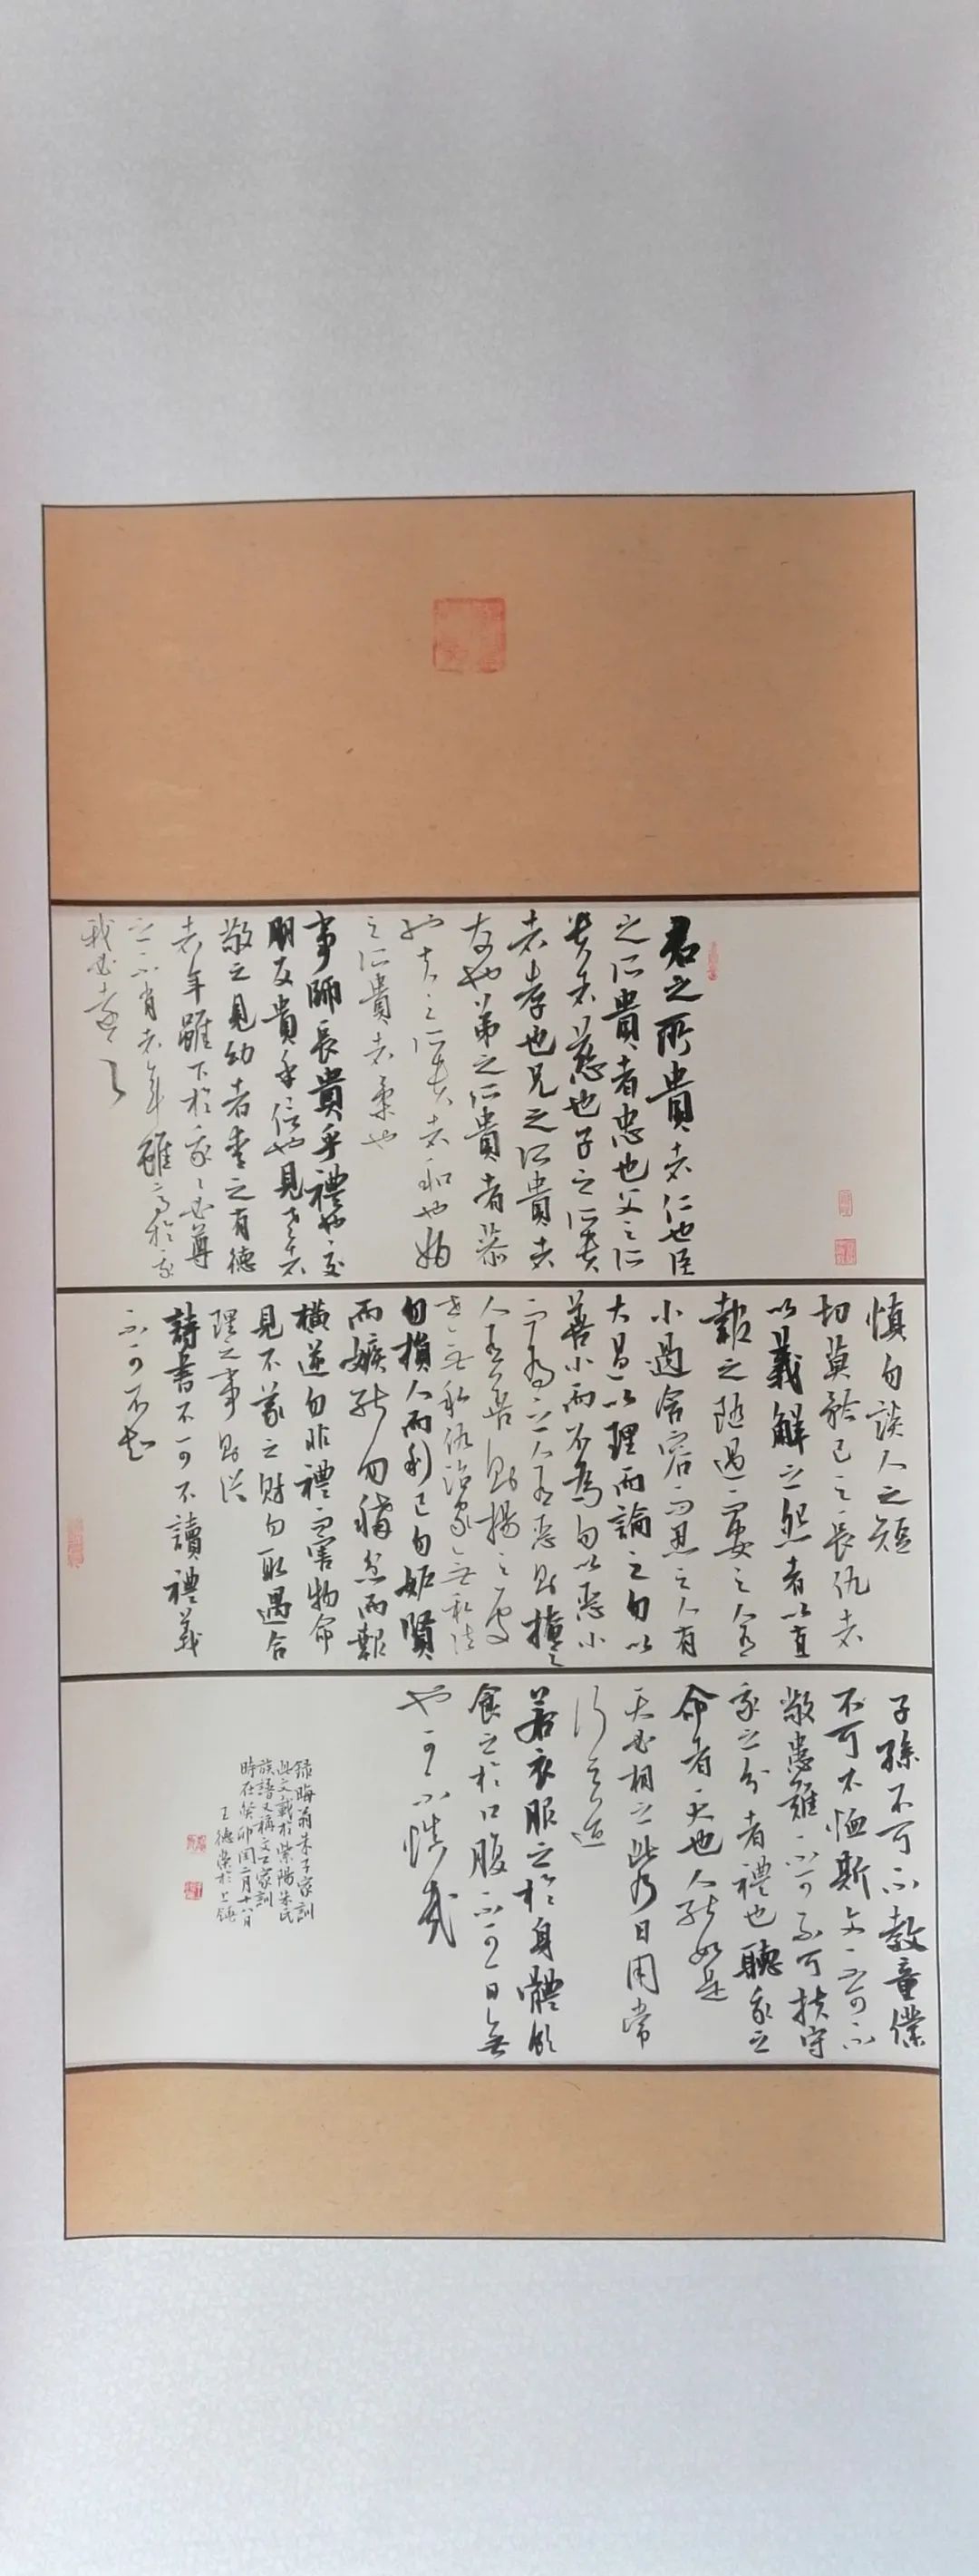 君之所貴者仁也臣
之所貴者忠也父之所
貴者慈也子之所貴
者孝也兄之所貴者
友也弟之所貴者恭
也夫之所貴者和也婦
之所貴者柔也
事師長貴乎禮也交
朋友貴乎信也見老者
敬之見幼者愛之有德
者年雖下於我我必尊
之不肖者年雖高於我
我必遠之
慎勿談人之短
切莫矜己之長仇者
以義解之怨者以直
報之隨遇而安之人有
小過含容而忍之人有
大過以理而論之勿以
善小而不為勿以惡小
而為之人有惡則掩之
人有善則揚之處
世無私仇治家無私法
勿損人而利己勿妒賢
而嫉能勿稱忿而報
橫逆勿非禮而害物命
見不義之財勿取遇合
理之事則從
詩書不可不讀禮義
不可不知
子孫不可不教童僕
不可不恤斯文不可不
敬患難不可不扶守
我之分者禮也聽我之
命者天也人能如是
天必相之此乃日用常
行之道
若衣服之於身體飲
食之於口腹不可一日無
也可不慎哉
錄晦翁朱子家訓
此文載於紫陽朱氏
族譜又稱文公家訓
時在癸卯閏二月十六日
王德榮於上饒